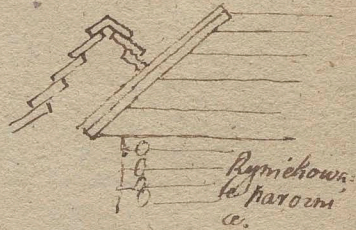 Ryniekowa=
łe parozni
ce.